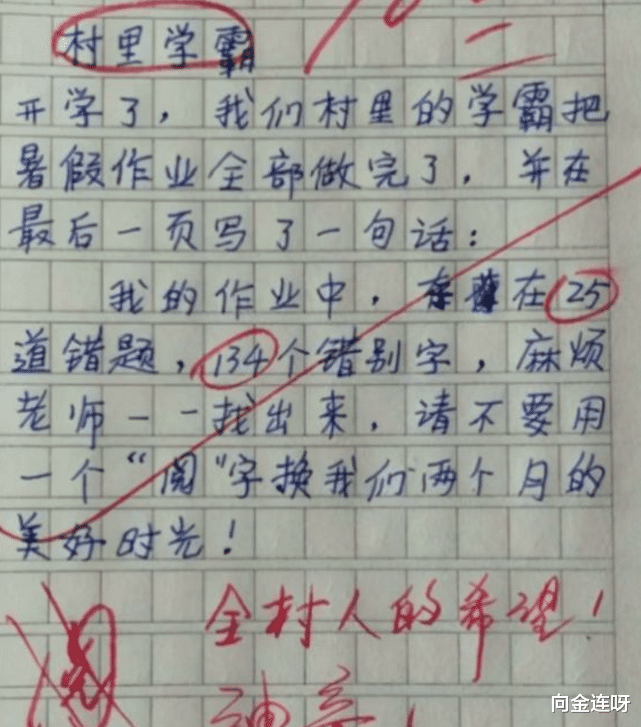 村里学霸
开学了，我们村里的学霸把
暑假作业全部做完了，并在
最后一页写了一句话：
我的作业中，在25
道错题，134个错别字，麻烦
老师一一找出来，请不要用
一个“阅”字换我们两个月的
美好时光！
全村人的希望！
向金连呀